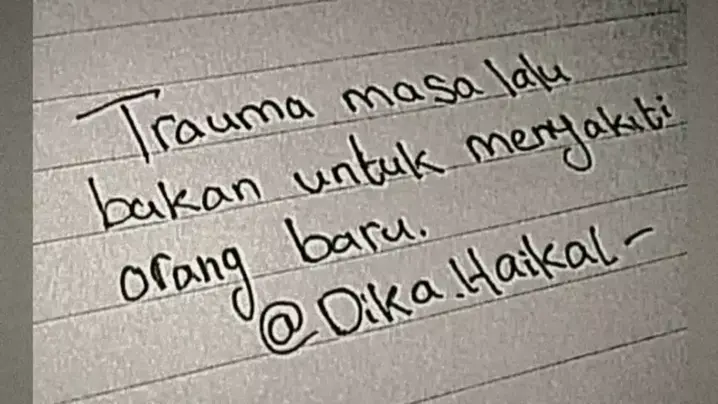 Trauma masa lalu
bukan untuk menyakiti
orang baru.
@Dika.Haikal-